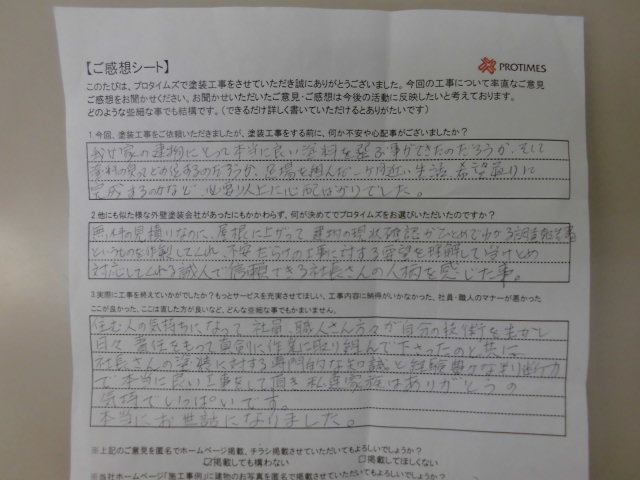 【ご感想シート】
PROTIMES
このたびは、プロタイムズで塗装工事をさせていただき誠にありがとうございました。今回の工事について率直なご意見
ご感想をお聞かせください。お聞かせいただいたご意見・ご感想は今後の活動に反映したいと考えております。
どのような些細な事でも結構です。(できるだけ詳しく書いていただけるとありがたいです)
1.今回、塗装工事をご依頼いただきましたが、塗装工事をする前に、何か不安や心配事がございましたか?
我が家の建物にとって本当に良い塗料を選ぶ事ができたのだろうか、そして
塗料の良さどが生するのだろうか、足場を囲んだ一ヶ月近い生活、希望通りに
完成するのかなど、必要以上に心配ばかりでした。
2.他にも似た様な外壁塗装会社があったにもかかわらず、何が決めてでプロタイムズをお選びいただいたのですか?
無料の見積りなのに、屋根に上がって建物の現状確認がひとめでわかる調査報告書
というものを作製してくれ、不安だらけの工事に対する要望を理解して受けとめ
対応してくれる誠人で信頼できる社長さんの人柄を感じた事。
3.実際に工事を終えていかがでしたか?もっとサービを充実させてほしい、工事内容に納得がいかなかった、社員・職人のマナーが悪かった
ここが良かった、ここは直した方が良いなど、どんな些細な事でもかまいません。
住む人の気持ちになって社員、職人さん方々が自分の技術を生かし
日々責任をもって真剣に作業に取り組んで下さったのと共に、
社長さんの塗装に対する専門的な知識と経験豊かな判断力
で本当に良い工事をして頂き私達家族はありがとうの
気持でいっぱいです。
本当にお世話になりました。
※上記のご意見を匿名でホームページ掲載、チラシ掲載させていただいてもよろしいでしょうか?
☑掲載しても構わない □掲載してほしくない
※当社ホームページ「施工事例」に建物のお写真を匿名で掲載させていただいてもよろしいでしょうか?